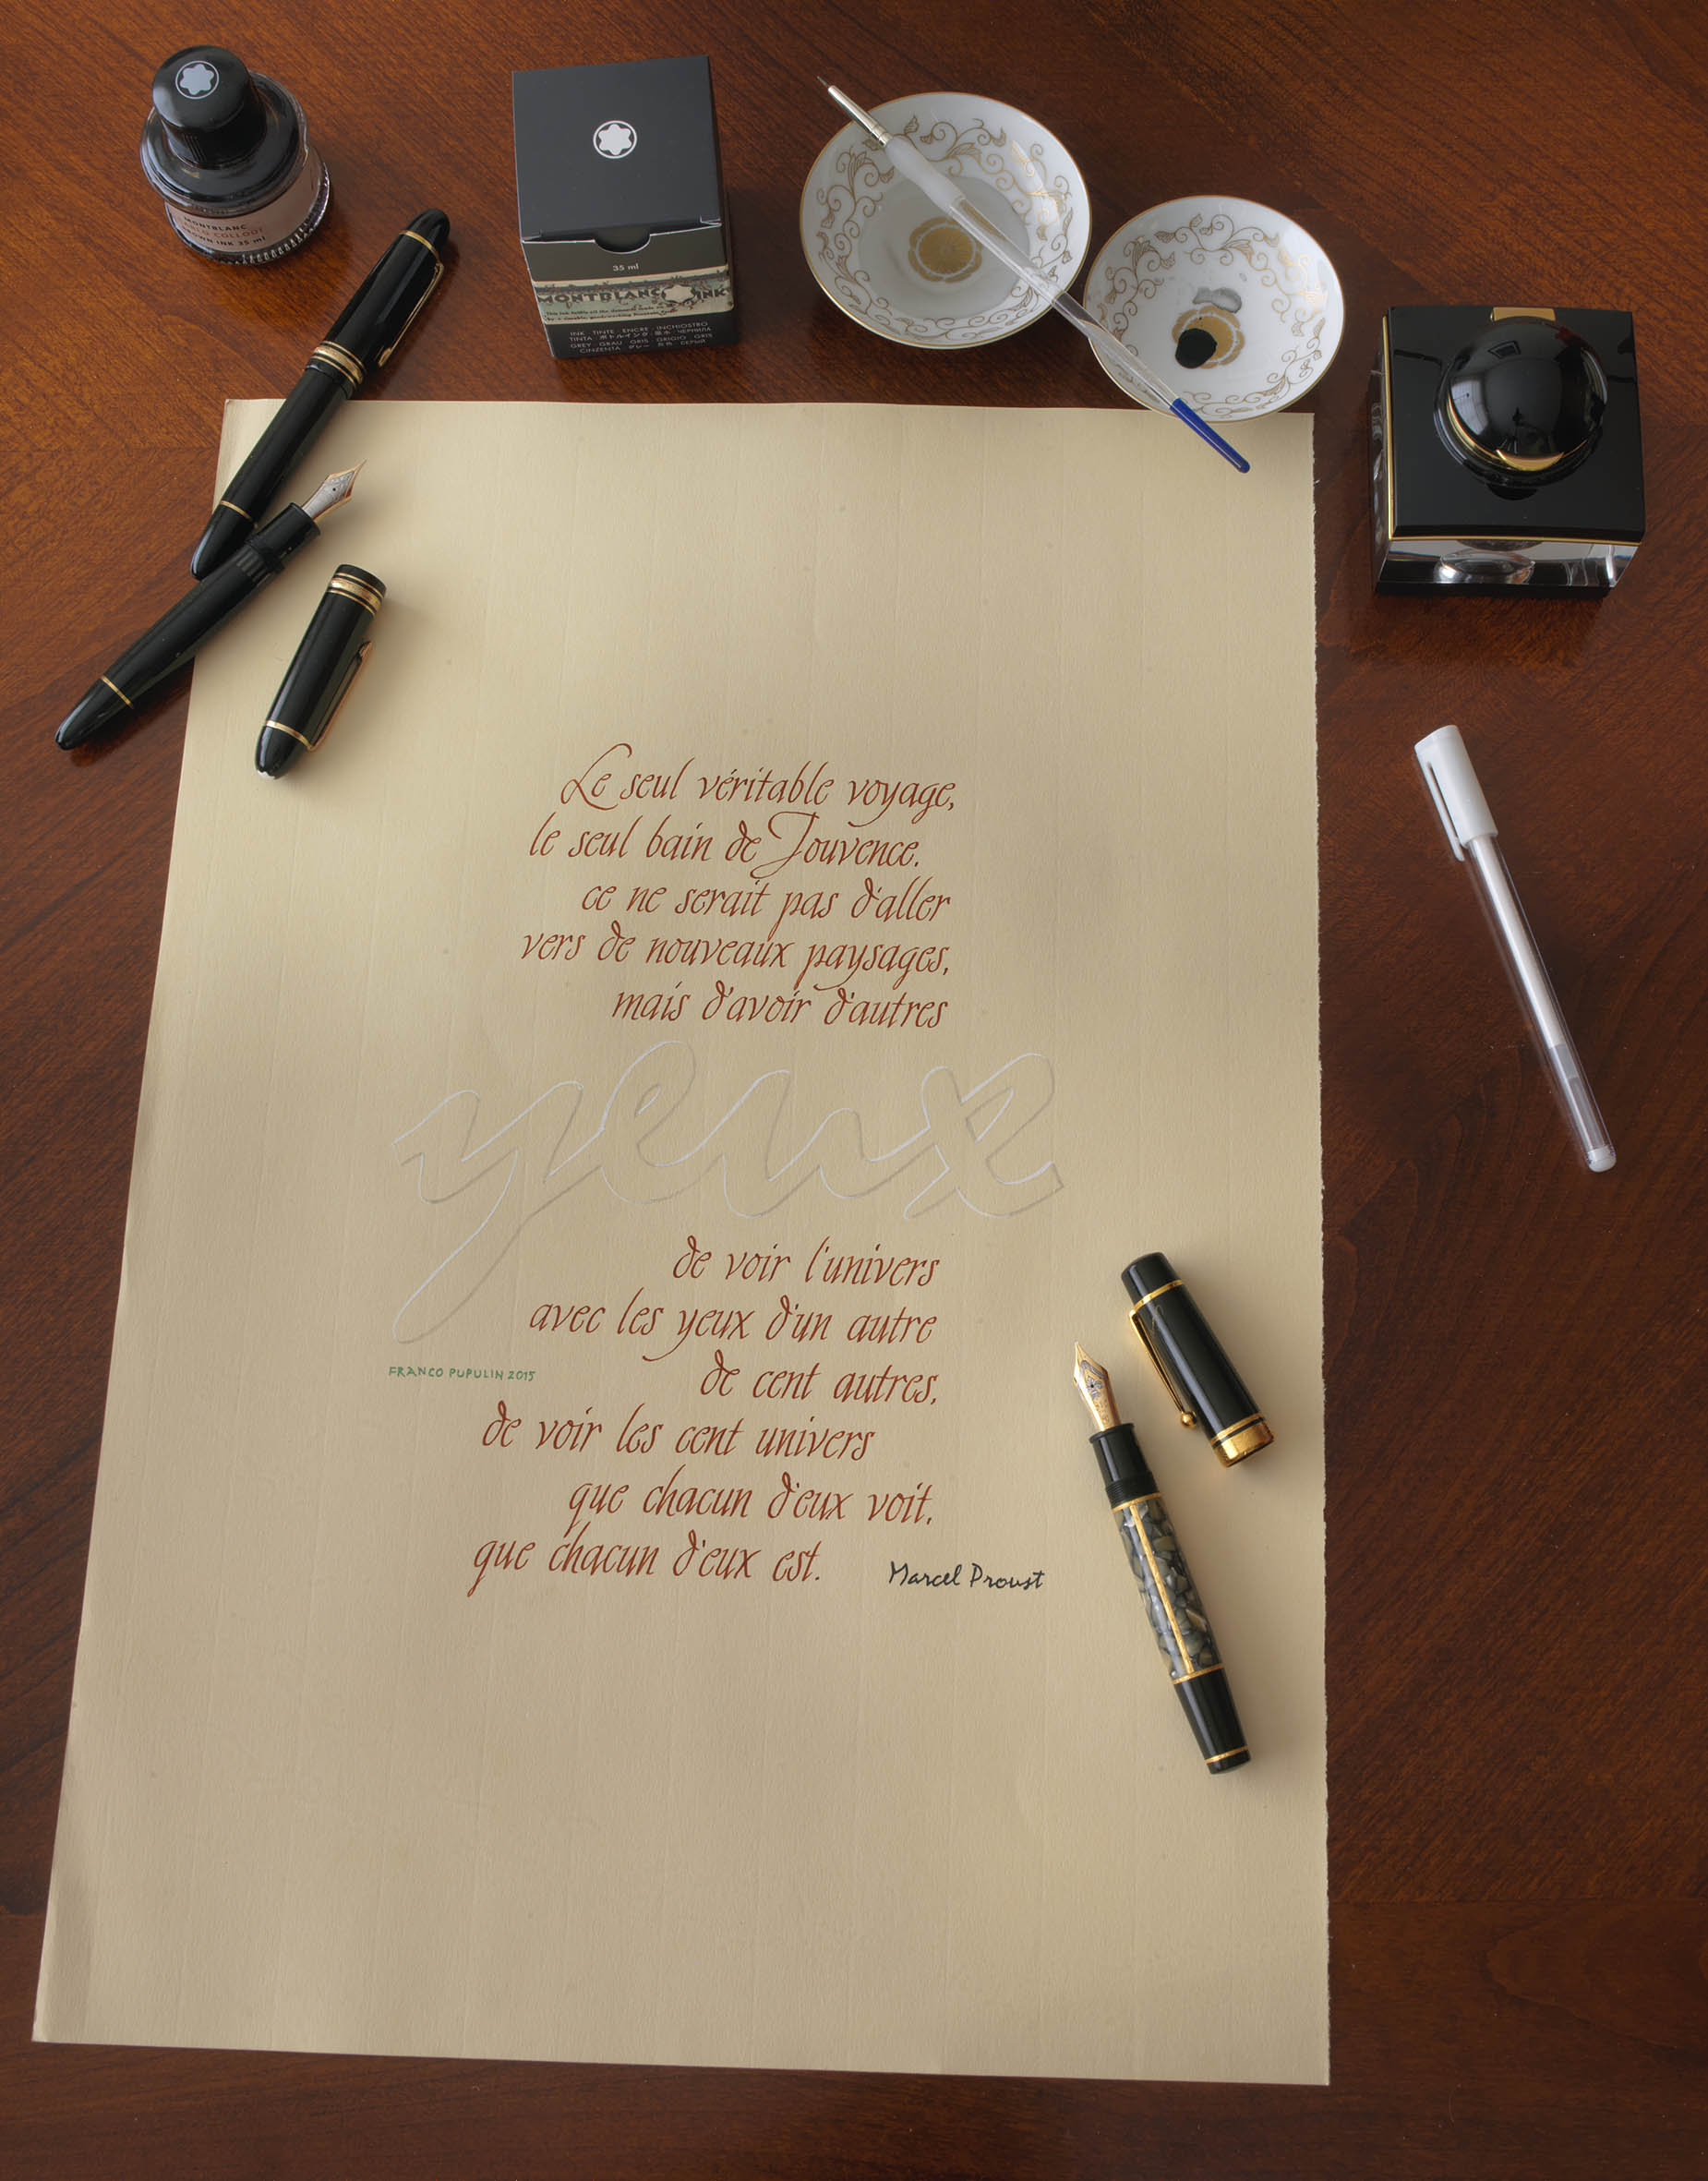 MONTBLANC
INK 35 ml
35 ml
MONTBLANC INK
INK TINTE ENCRE INCHIOSTRO
TINTA
GREY GRAU GRIS GRIGIO GRIS
CINZENTA
Le seul véritable voyage,
le seul bain de Jouvence.
ce ne serait pas d'aller
vers de nouveaux paysages,
mais d'avoir d'autres
yeux
de voir l'univers
avec les yeux d'un autre
FRANCO PUPULIN 2015
de cent autres,
de voir les cent univers
que chacun d'eux voit,
que chacun d'eux est.
Marcel Proust